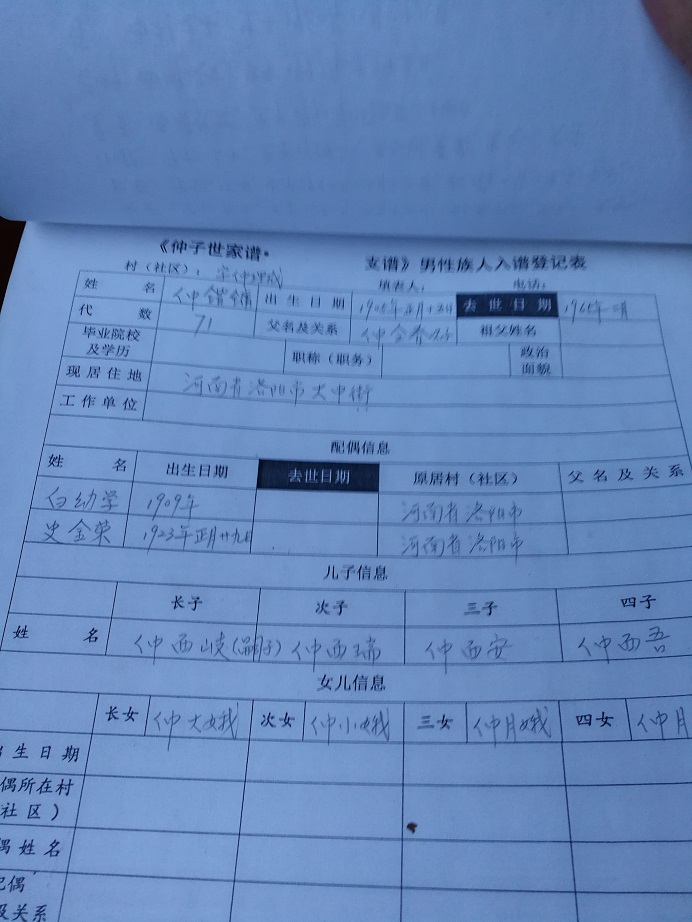 《仲子世家谱•　　支谱》男性族人入谱登记表
村（社区）：　填表人：　电话：
姓　名　仲　出生日期　1905年　去世日期　1965年
代　数　71　父名及关系　仲金　祖父姓名
毕业院校及学历　职称（职务）　政治面貌
现居住地　河南省洛阳市大中街
工作单位
配偶信息
姓　名　出生日期　去世日期　原居村（社区）　父名及关系
白幼学　1909年　河南省洛阳市
史金荣　1923年正月廿九日　河南省洛阳市
儿子信息
长子　次子　三子　四子
姓　名　仲西岐(嗣子)　仲西瑞　仲西安　仲西吾
女儿信息
长女　仲大娥　次女　仲小娥　三女　仲月娥　四女　仲月
出生日期
偶所在村
社区）
偶姓名
配偶
及关系